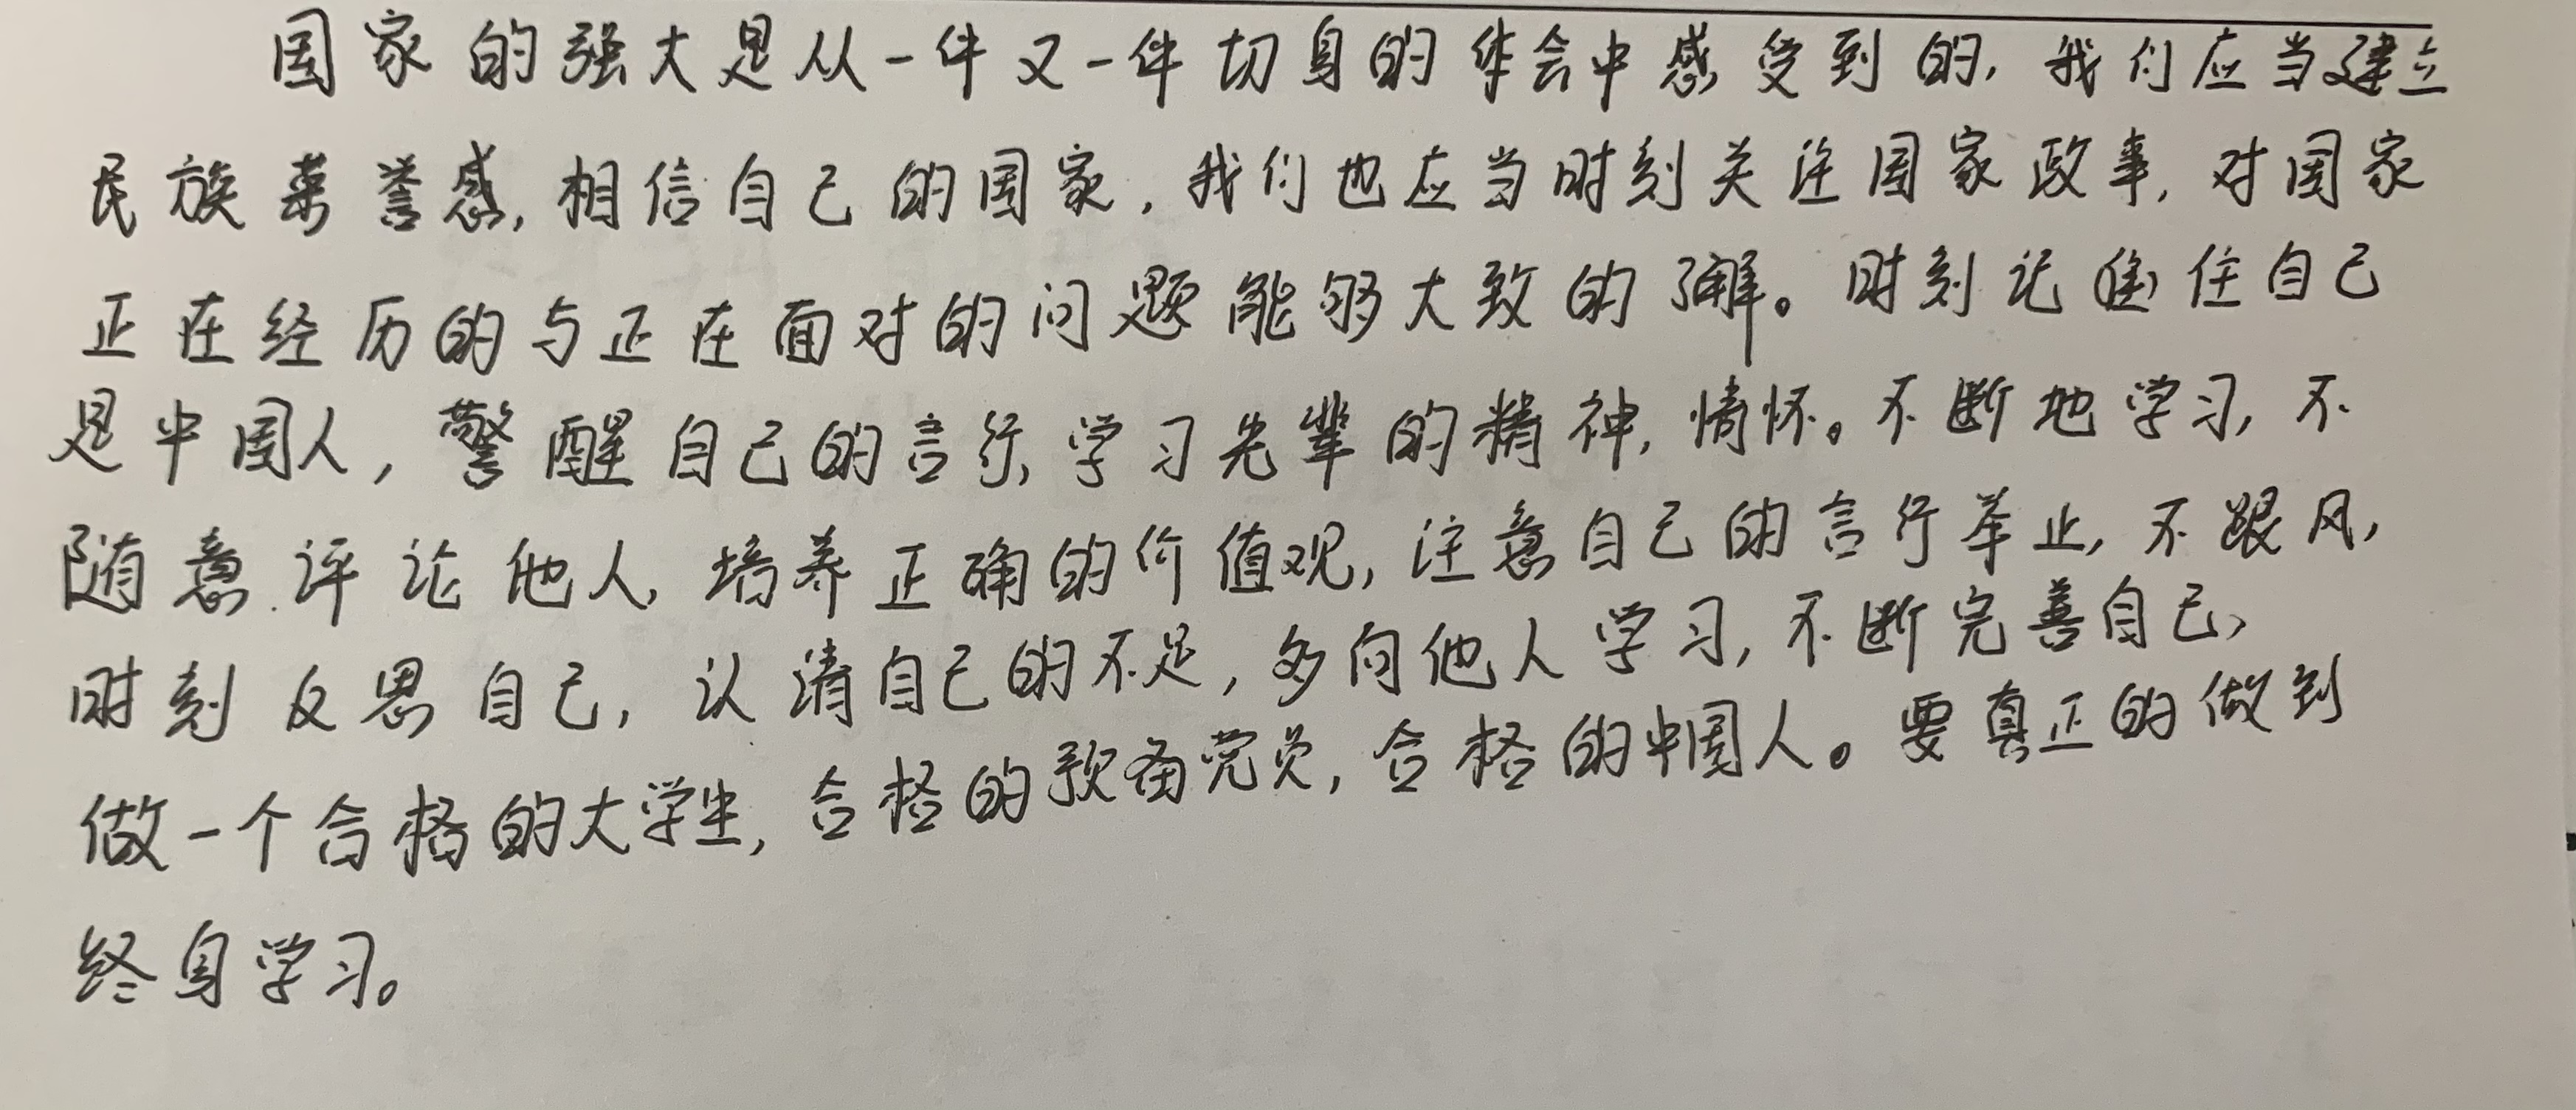 国家的强大是从一件又一件切身的体会中感受到的,我们应当建立
民族荣誉感,相信自己的国家,我们也应当时刻关注国家政事,对国家
正在经历的与正在面对的问题能够大致的了解。时刻记住自己
是中国人,警醒自己的言行,学习先辈的精神,情怀。不断地学习,不
随意评论他人,培养正确的价值观,注意自己的言行举止,不跟风,
时刻反思自己,认清自己的不足,多向他人学习,不断完善自己,
做一个合格的大学生,合格的预备党员,合格的中国人。要真正的做到
终身学习。